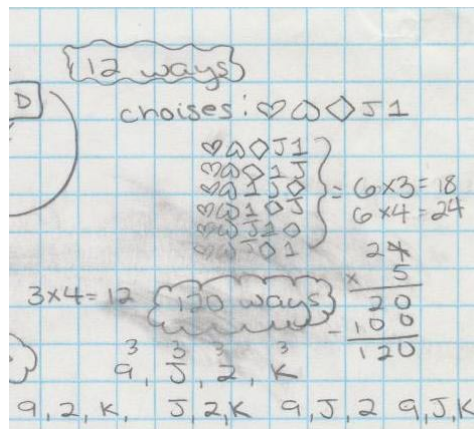 12 ways
D
choises: ♡ ♤ ◇ J 1
♡ ♤ ◇ J 1
♡ ♤ ◇ 1 J
♡ ♤ 1 J ◇
♡ ♤ 1 ◇ J
♡ ♤ J 1 ◇
♡ ♤ J ◇ 1
= 6x3=18
6x4=24
24
x 5
20
100
120
3x4=12
120 ways
3 3 3 3
9, J, 2, K
9, 2, K, J, 2, K 9, J, 2 9, J, K